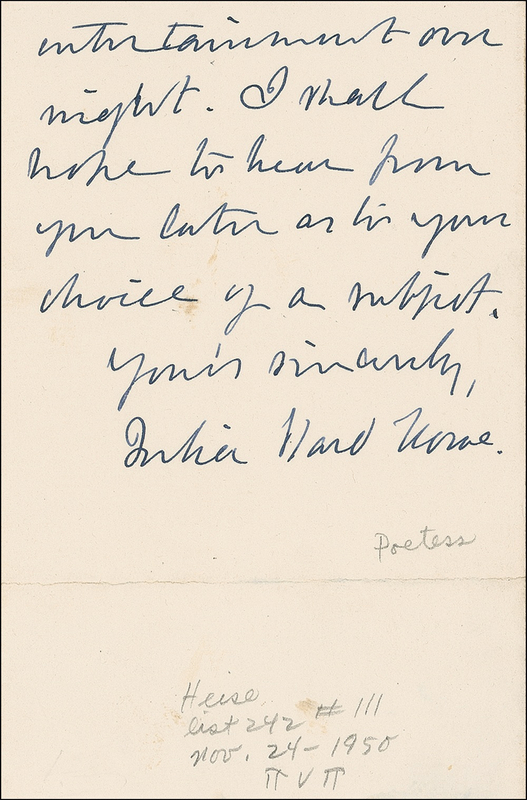 entertainment over
night. I shall
hope to hear from
you later as to your
choice of a subject.
Yours sincerely,
Julia Ward Howe.
Poetess
Heise
list 242 # 111
nov. 24 - 1950
π v π